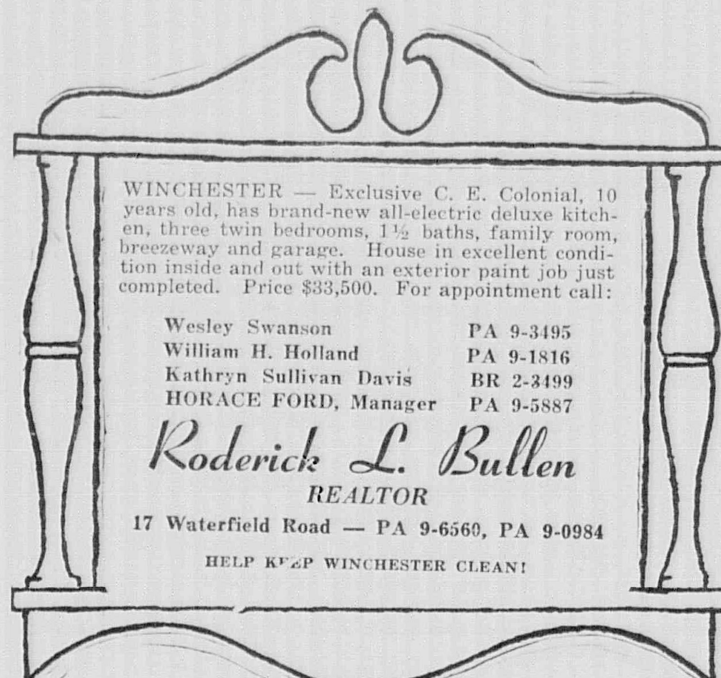 WINCHESTER — Exclusive C. E. Colonial, 10
years old, has brand-new all-electric deluxe kitch-
en, three twin bedrooms, 1½ baths, family room,
breezeway and garage. House in excellent condi-
tion inside and out with an exterior paint job just
completed. Price $33,500. For appointment call:
Wesley Swanson PA 9-3495
William H. Holland PA 9-1816
Kathryn Sullivan Davis BR 2-3499
HORACE FORD, Manager PA 9-5887
Roderick L. Bullen
REALTOR
17 Waterfield Road — PA 9-6560, PA 9-0984
HELP KEEP WINCHESTER CLEAN!